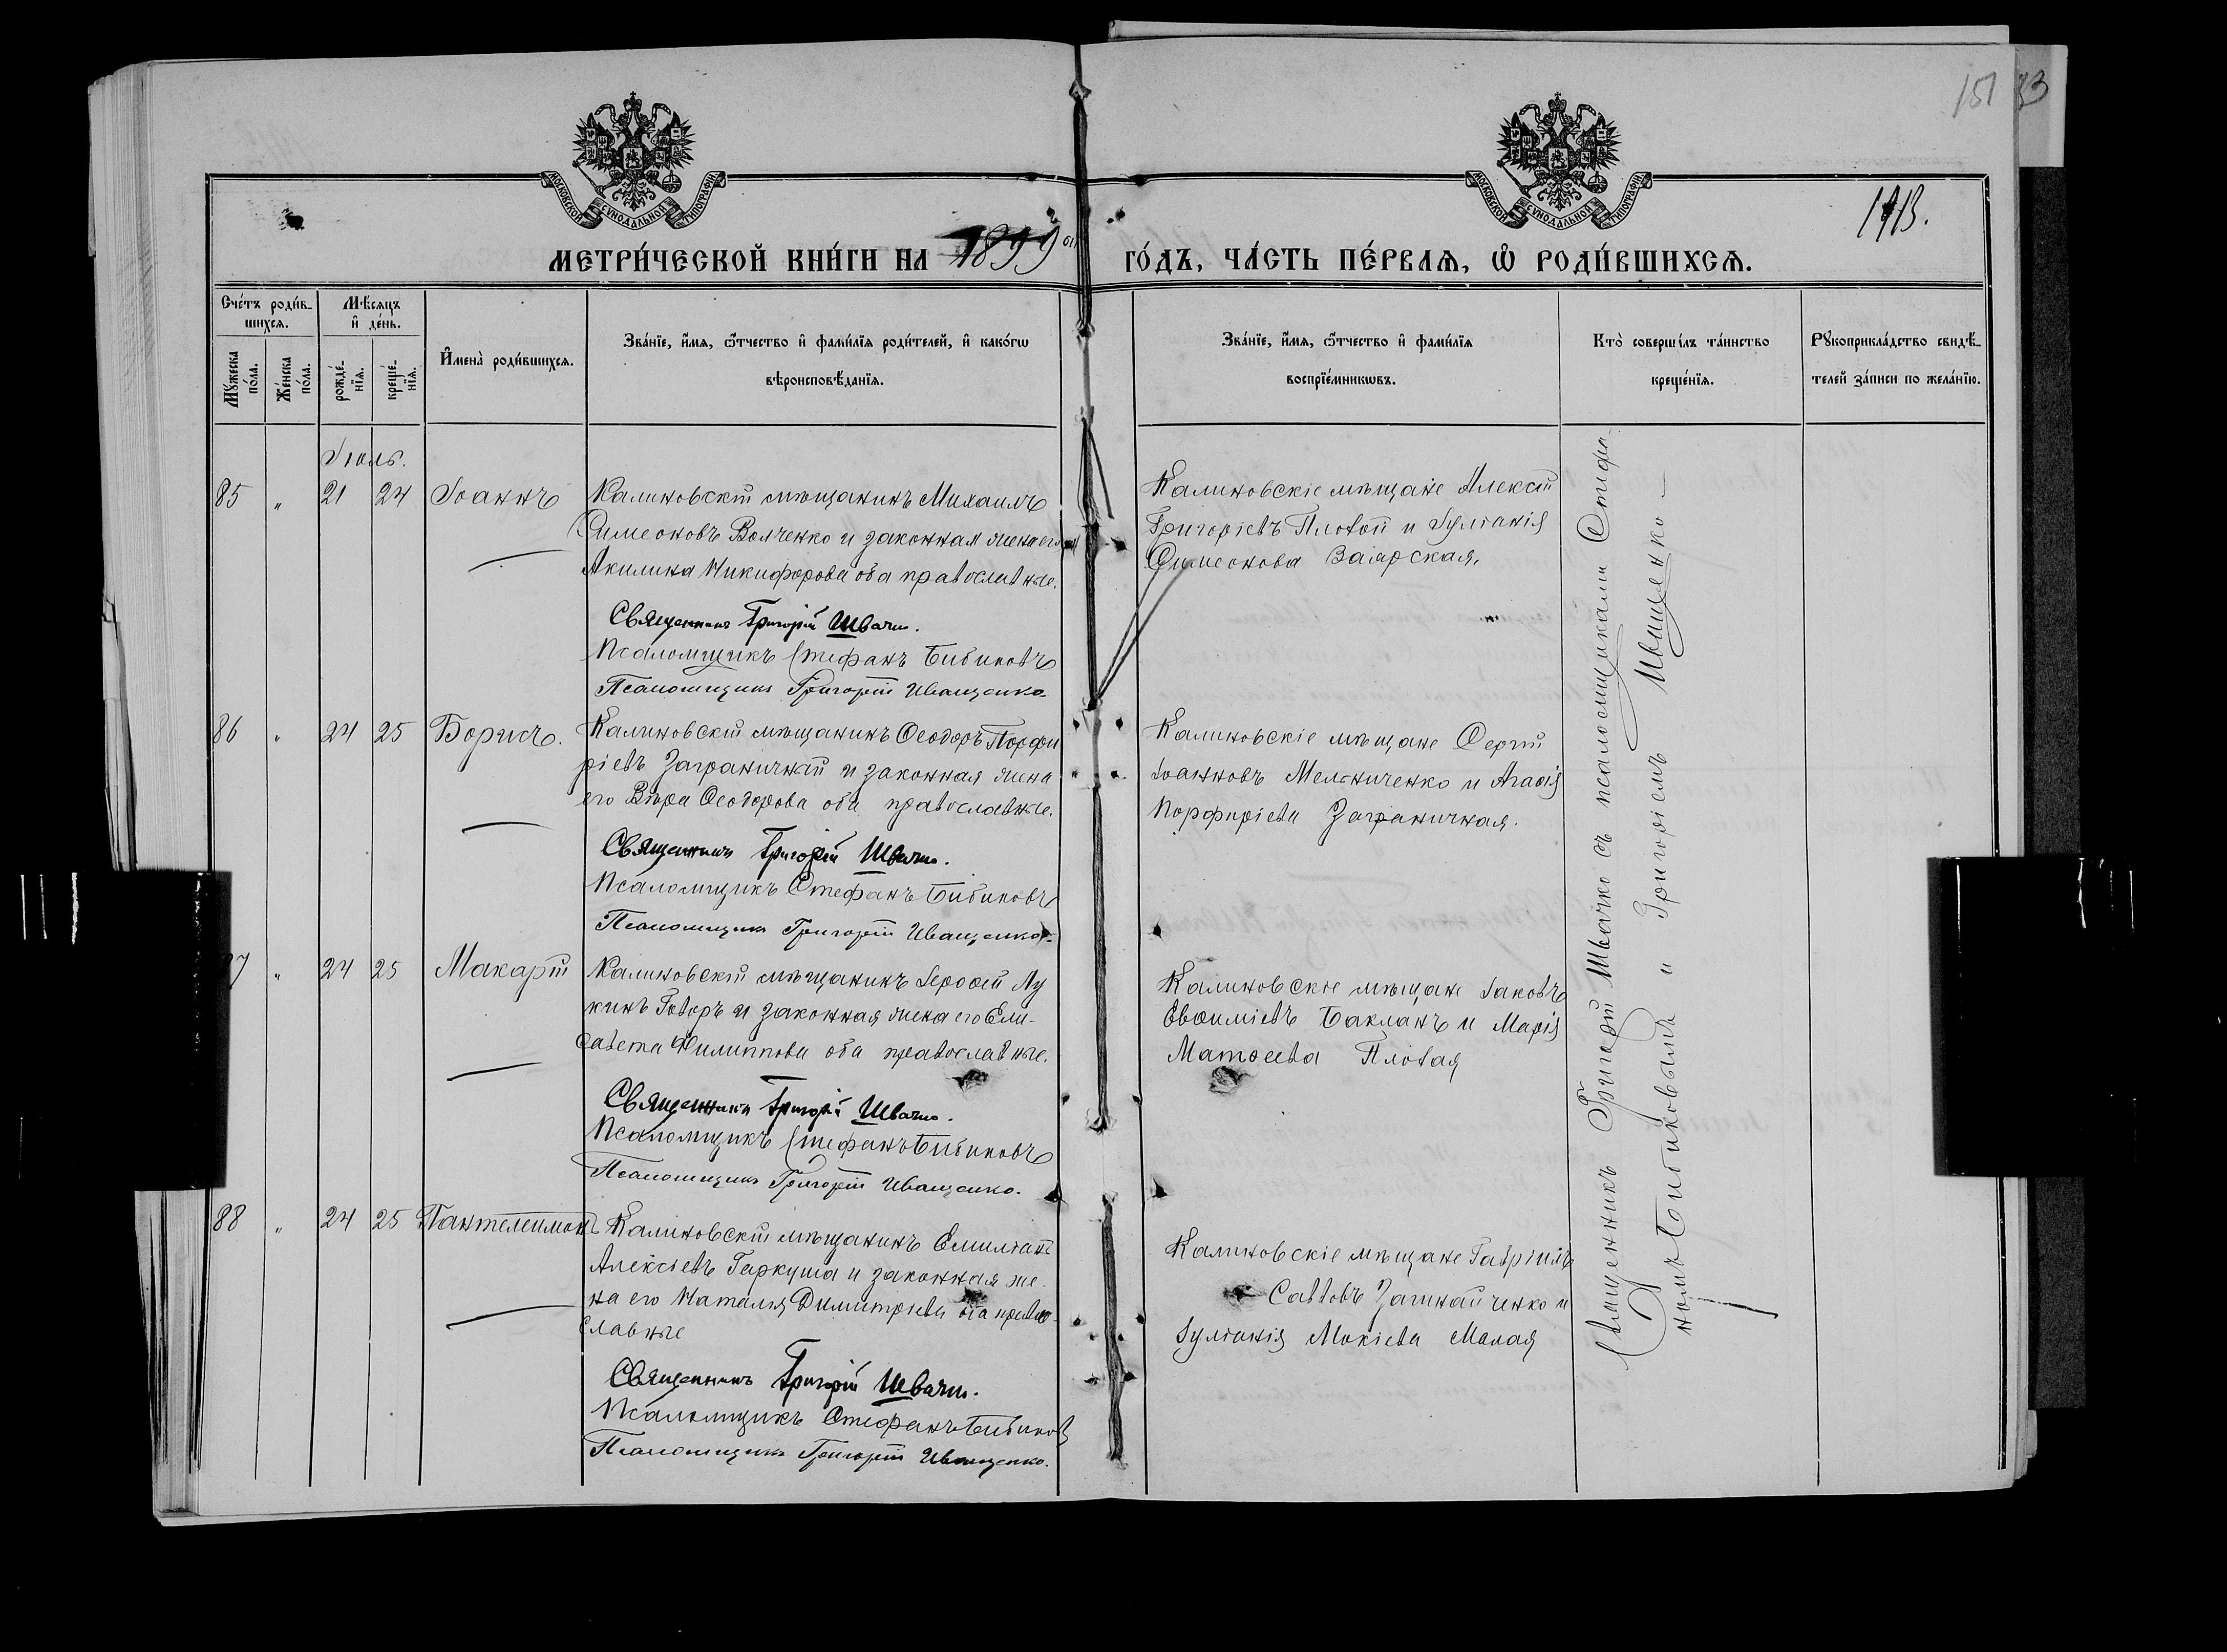 151 33
МОСКОВСКОЙ СѴНОДАЛЬНОЙ ТИПОГРАФІИ
МОСКОВСКОЙ СѴНОДАЛЬНОЙ ТИПОГРАФІИ
1913.
МЕТРИ́ЧЕСКОЙ КНИ́ГИ НА 1899
ГО́ДЪ, ЧА́СТЬ ПЕ́РВАѦ, Ѽ РОДИ́ВШИХСѦ.
Сче́тъ роди́в-
шихсѧ.
Мꙋ́жеска по́ла.
Же́нска по́ла.
Мѣ́сѧцъ
и҆ де́нь.
рожде́-
нїѧ.
креще́-
нїѧ.
И҆мена̀ роди́вшихсѧ.
Зва́нїе, и҆́мѧ, ѻ҆́тчество и҆ фами́лїѧ роди́телей, и҆ како́гѡ
вѣроисповѣ́данїѧ.
Зва́нїе, и҆́мѧ, ѻ҆́тчество и҆ фами́лїѧ
воспрїе́мникѡвъ.
Кто̀ соверши́лъ та́инство
креще́нїѧ.
Рꙋкоприкла́дство свидѣ́-
телей за́писи по жела́нїю.
Іюль.
85 " 21 24 Іоаннъ
Калиновскій мѣщанинъ Михаилъ
Симеоновъ Волченко и законная жена его
Акилина Никифорова оба православные.
Священникъ Григорій Швачко.
Псаломщикъ Стефанъ Бибиковъ
Псаломщикъ Григорій Иващенко
Калиновскіе мѣщане Алексій
Григоріевъ Плохой и Іуліанія
Симеонова Заярская.
86 " 24 25 Борисъ.
Калиновскій мѣщанинъ Ѳеодоръ Порфи
ріевъ Заграничный и законная жена
его Вѣра Ѳеодорова оба православные.
Священникъ Григорій Швачко.
Псаломщикъ Стефанъ Бибиковъ
Псаломщикъ Григорій Иващенко.
Калиновскіе мѣщане Сергій
Іоанновъ Мельниченко и Агаѳія
Порфиріева Заграничная.
87 " 24 25 Макарій
Калиновскій мѣщанинъ Іероѳей Лу
кинъ Говоръ и законная жена его Ели-
савета Филиппова оба православные.
Священникъ Григорій Швачко.
Псаломщикъ Стефанъ Бибиковъ
Псаломщикъ Григорій Иващенко.
Калиновскіе мѣщане Іаковъ
Евѳиміевъ Бакланъ и Марія
Матѳеева Плохая
88 " 24 25 Пантелеимонъ
Калиновскій мѣщанинъ Емиліанъ
Алексіевъ Гаркуша и законная же-
на его Наталія Димитріева оба право-
славные
Священникъ Григорій Швачко.
Псаломщикъ Стефанъ Бибиковъ
Псаломщикъ Григорій Иващенко.
Калиновскіе мѣщане Гавріилъ
Савовъ и
Іуліанія Мокіева Малая
Священникъ Григорій Швачко съ псаломщиками Стефа-
номъ Бибиковымъ и Григоріемъ Иващенко —